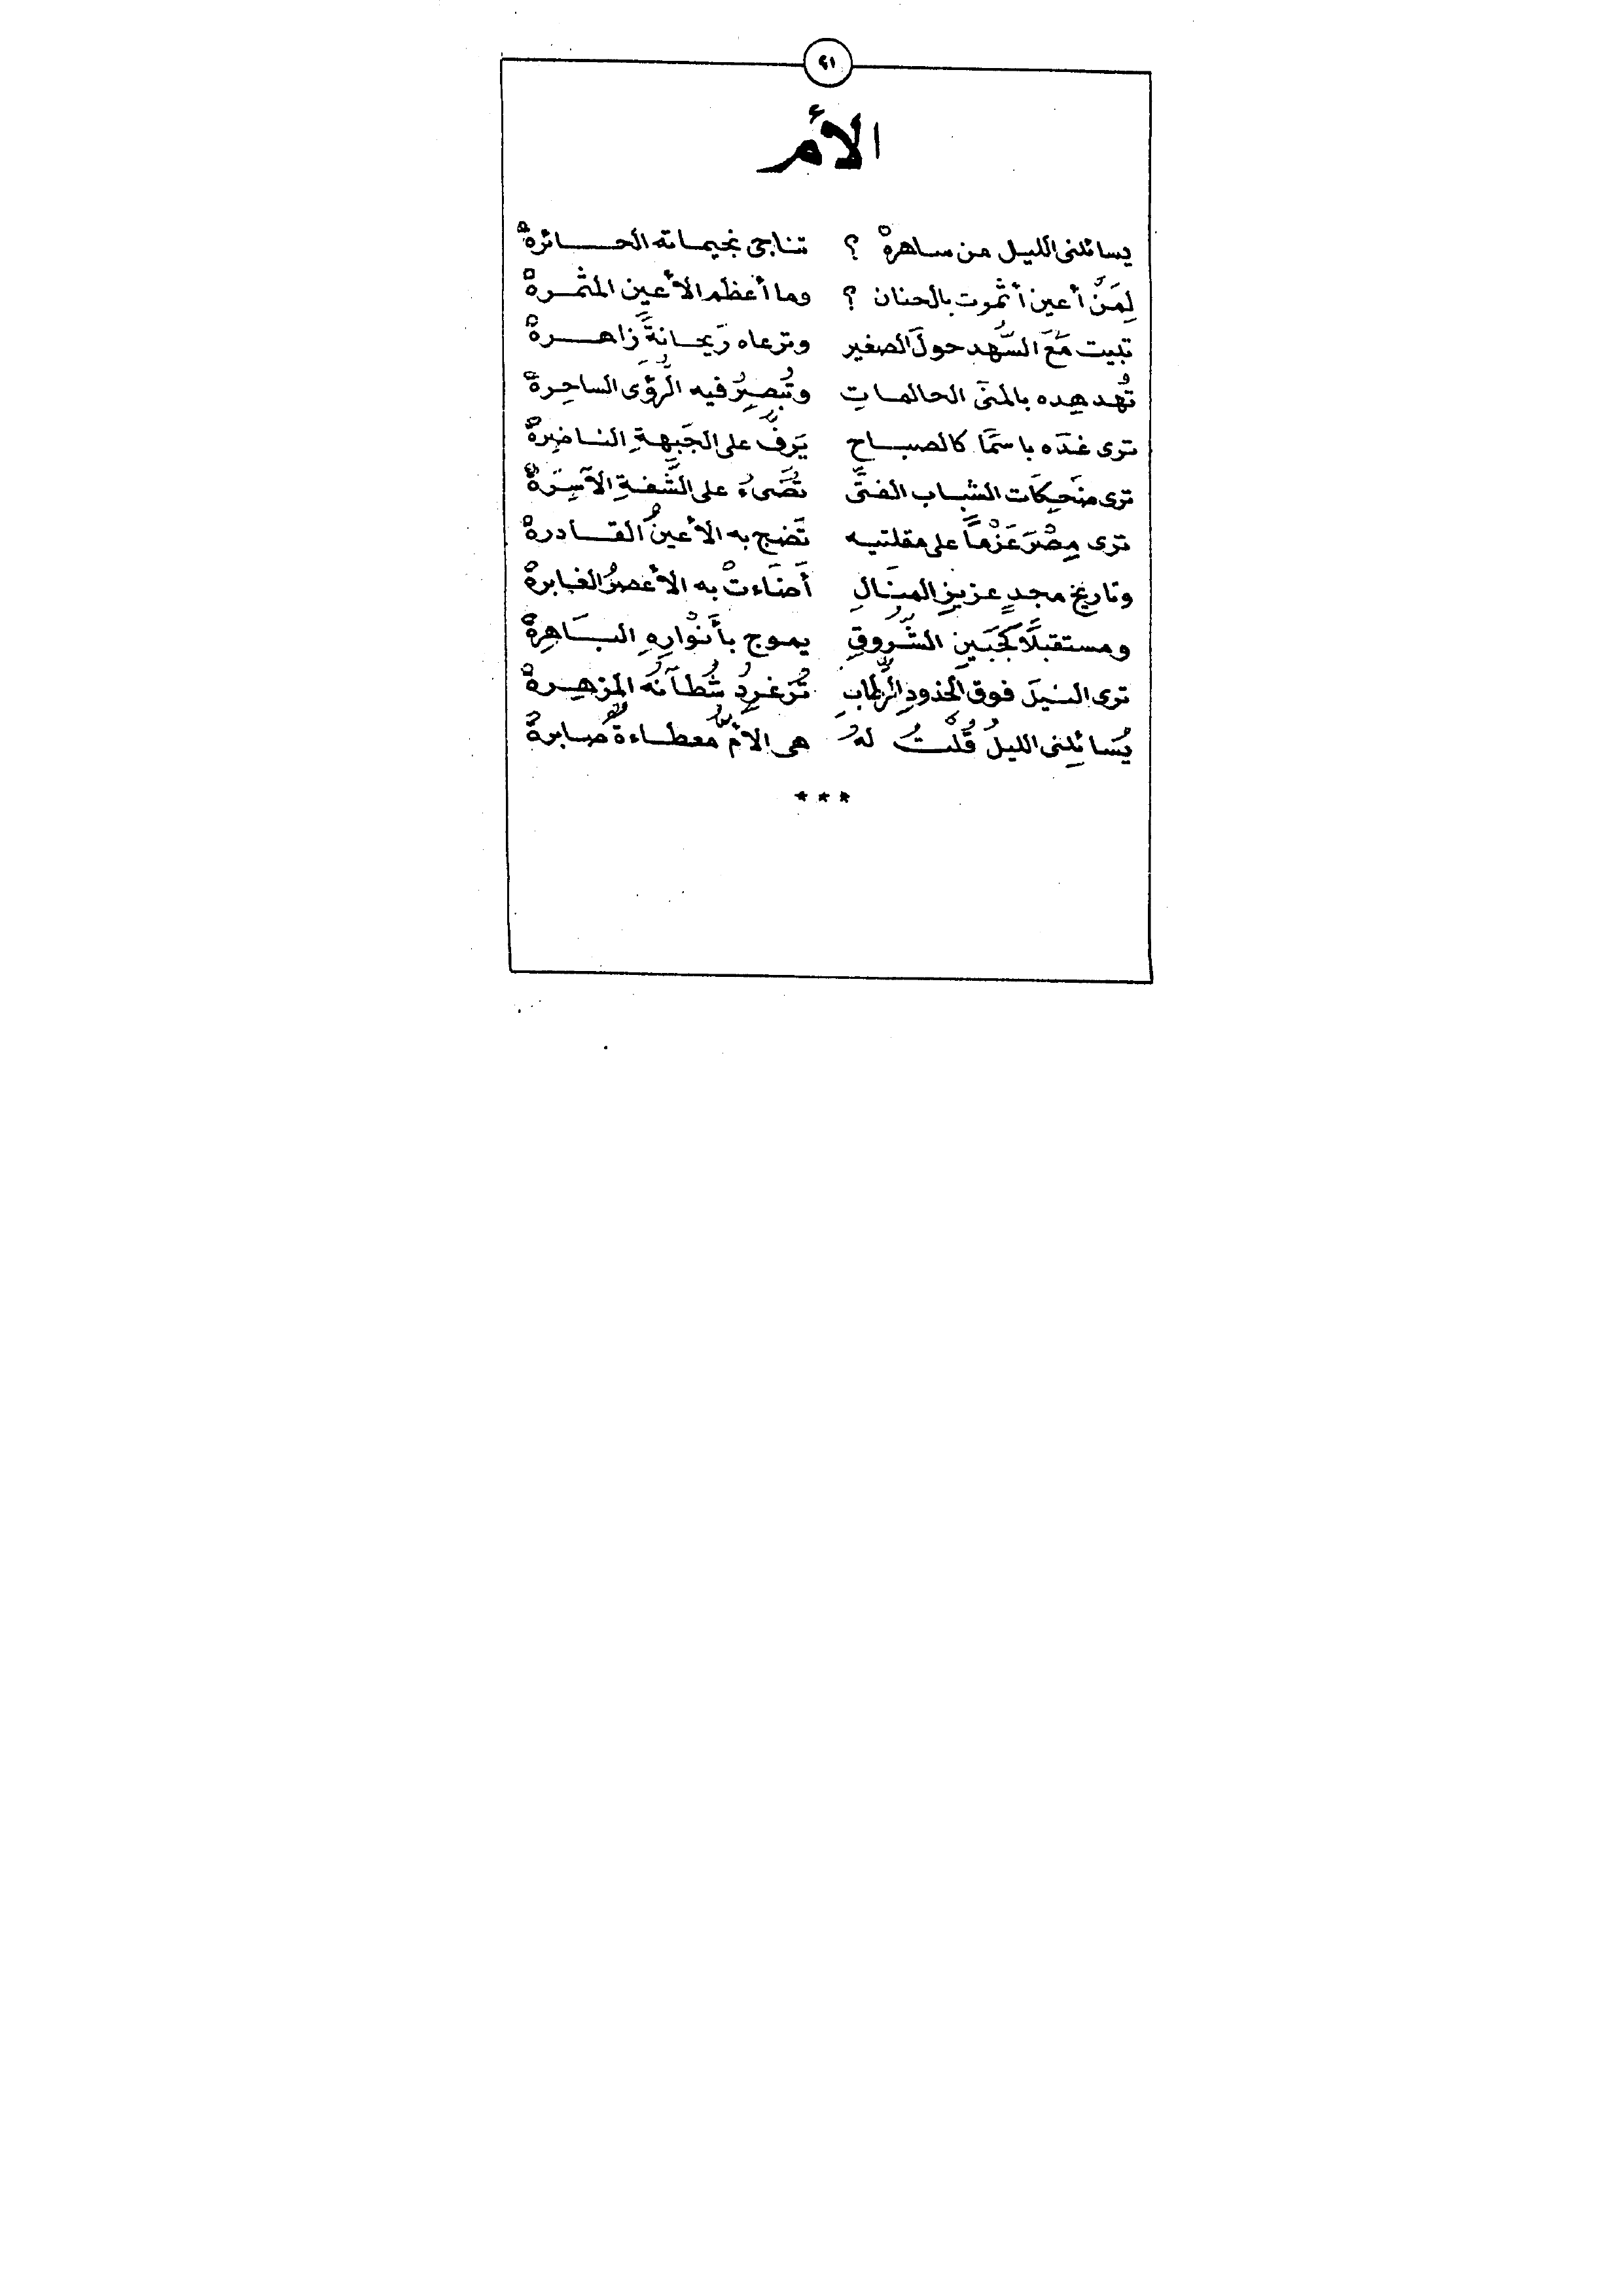 ٤١
الأم
يسائلنى الليل من ساهرهْ ؟ تناجى نجيماته الحائرهْ
لِمَنْ أعين أثمرت بالحنان ؟ وما أعظم الأعين المثمرهْ
تبيت مَعَ السُّهد حولَ الصغير وترعاه رَيحانةً زاهرهْ
تُهدهِده بالمنَى الحالماتِ وتُبصِرُ فيه الرُّؤَى الساحِرهْ
ترى غدَه باسمًا كالصباح يَرفُّ على الجَبهةِ الناضِرهْ
ترى ضَحِكَات الشباب الفتىِّ تُضَىءُ على الشَّفةِ الآسِرَهْ
ترى مِصْرَ عَزْماً على مقلتيه تَضج به الأعينُ القادرهْ
وتاريخ مجدٍ عزيزِ المنَالِ أَضَاءتْ به الأعصرُ الغابرهْ
ومستقبلًا كَجَبَينِ الشُّرُوقِ يموج بأَنْوارِهِ البَاهِرهْ
ترى النيلَ فوق الخدودِ الرِّطابِ تُزغرِدُ شُطآنُهُ المزهِرهْ
يُسَائِلنى الليلُ قُلْتُ لهُ هى الأمُّ معطاءةٌ صابرهْ
***